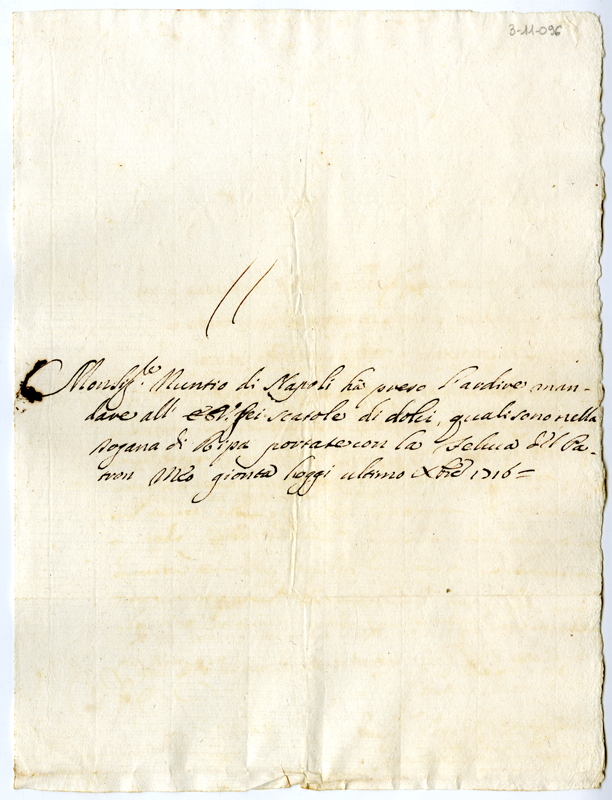 3-11-096
Monsig.re Nuntio di Napoli hà preso l'ardire man-
dare all' sei scatole di dolci, quali sono nella
Dogana di Ripa portate con la feluca del Pa-
tron Meo gionta hoggi ultimo Xbre 1716=